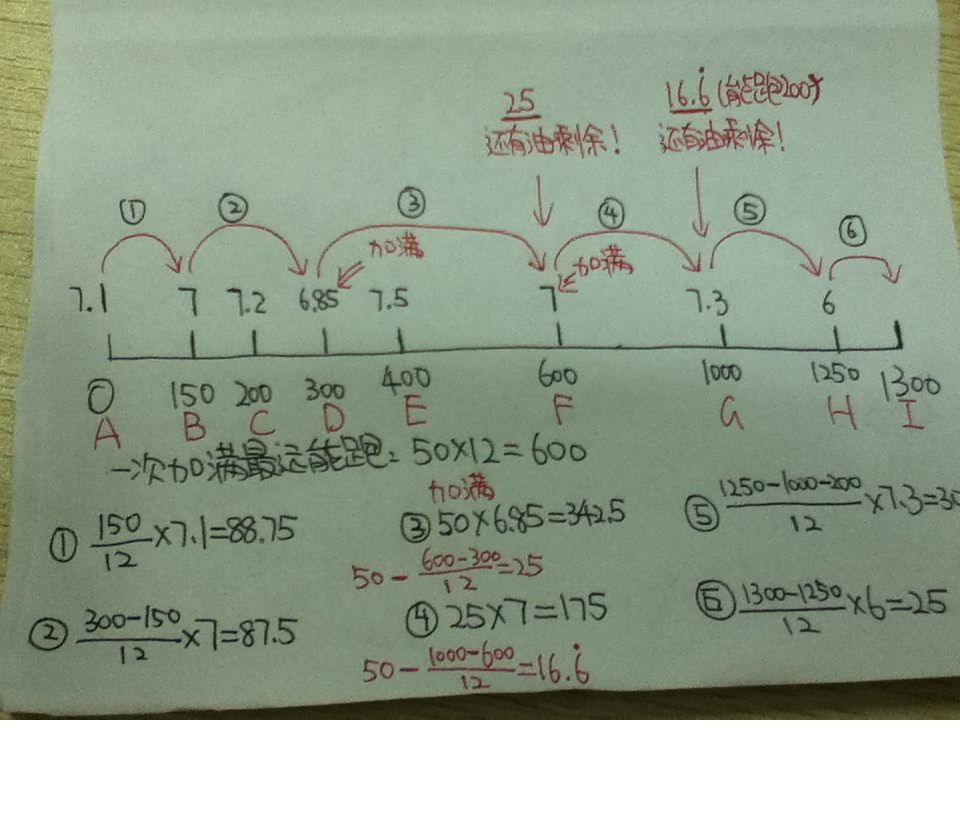 25
16.6̇ (能跑200)
还有油剩余！
还有油剩余！
① ② ③ ④ ⑤ ⑥
加满
加满
7.1 7 7.2 6.85 7.5 7 7.3 6
0 150 200 300 400 600 1000 1250 1300
A B C D E F G H I
一次加满最远能跑：50×12=600
① 150/12×7.1=88.75
② (300-150)/12×7=87.5
加满
③ 50×6.85=342.5
50-(600-300)/12=25
④ 25×7=175
50-(1000-600)/12=16.6̇
⑤ (1250-1000-200)/12×7.3=30
⑥ (1300-1250)/12×6=25